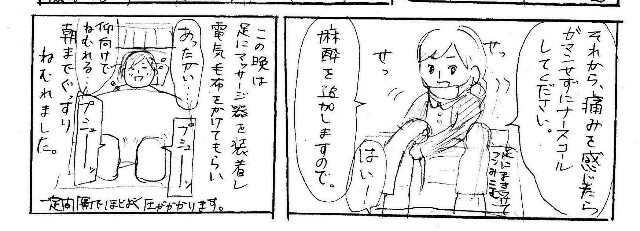 それから、痛みを感じたら
ガマンせずにナースコール
してください。
せっ
せっ
麻酔を追加しますので。
はいー
足にまきつけて
この晩は
足にマッサージ器を装着し
電気毛布をかけてもらい
あったかい…
仰向けで
ねむれる
朝までぐっすり
ねむれました。
プシューッ
プシューッ
一定間隔でほどよく圧がかかります。